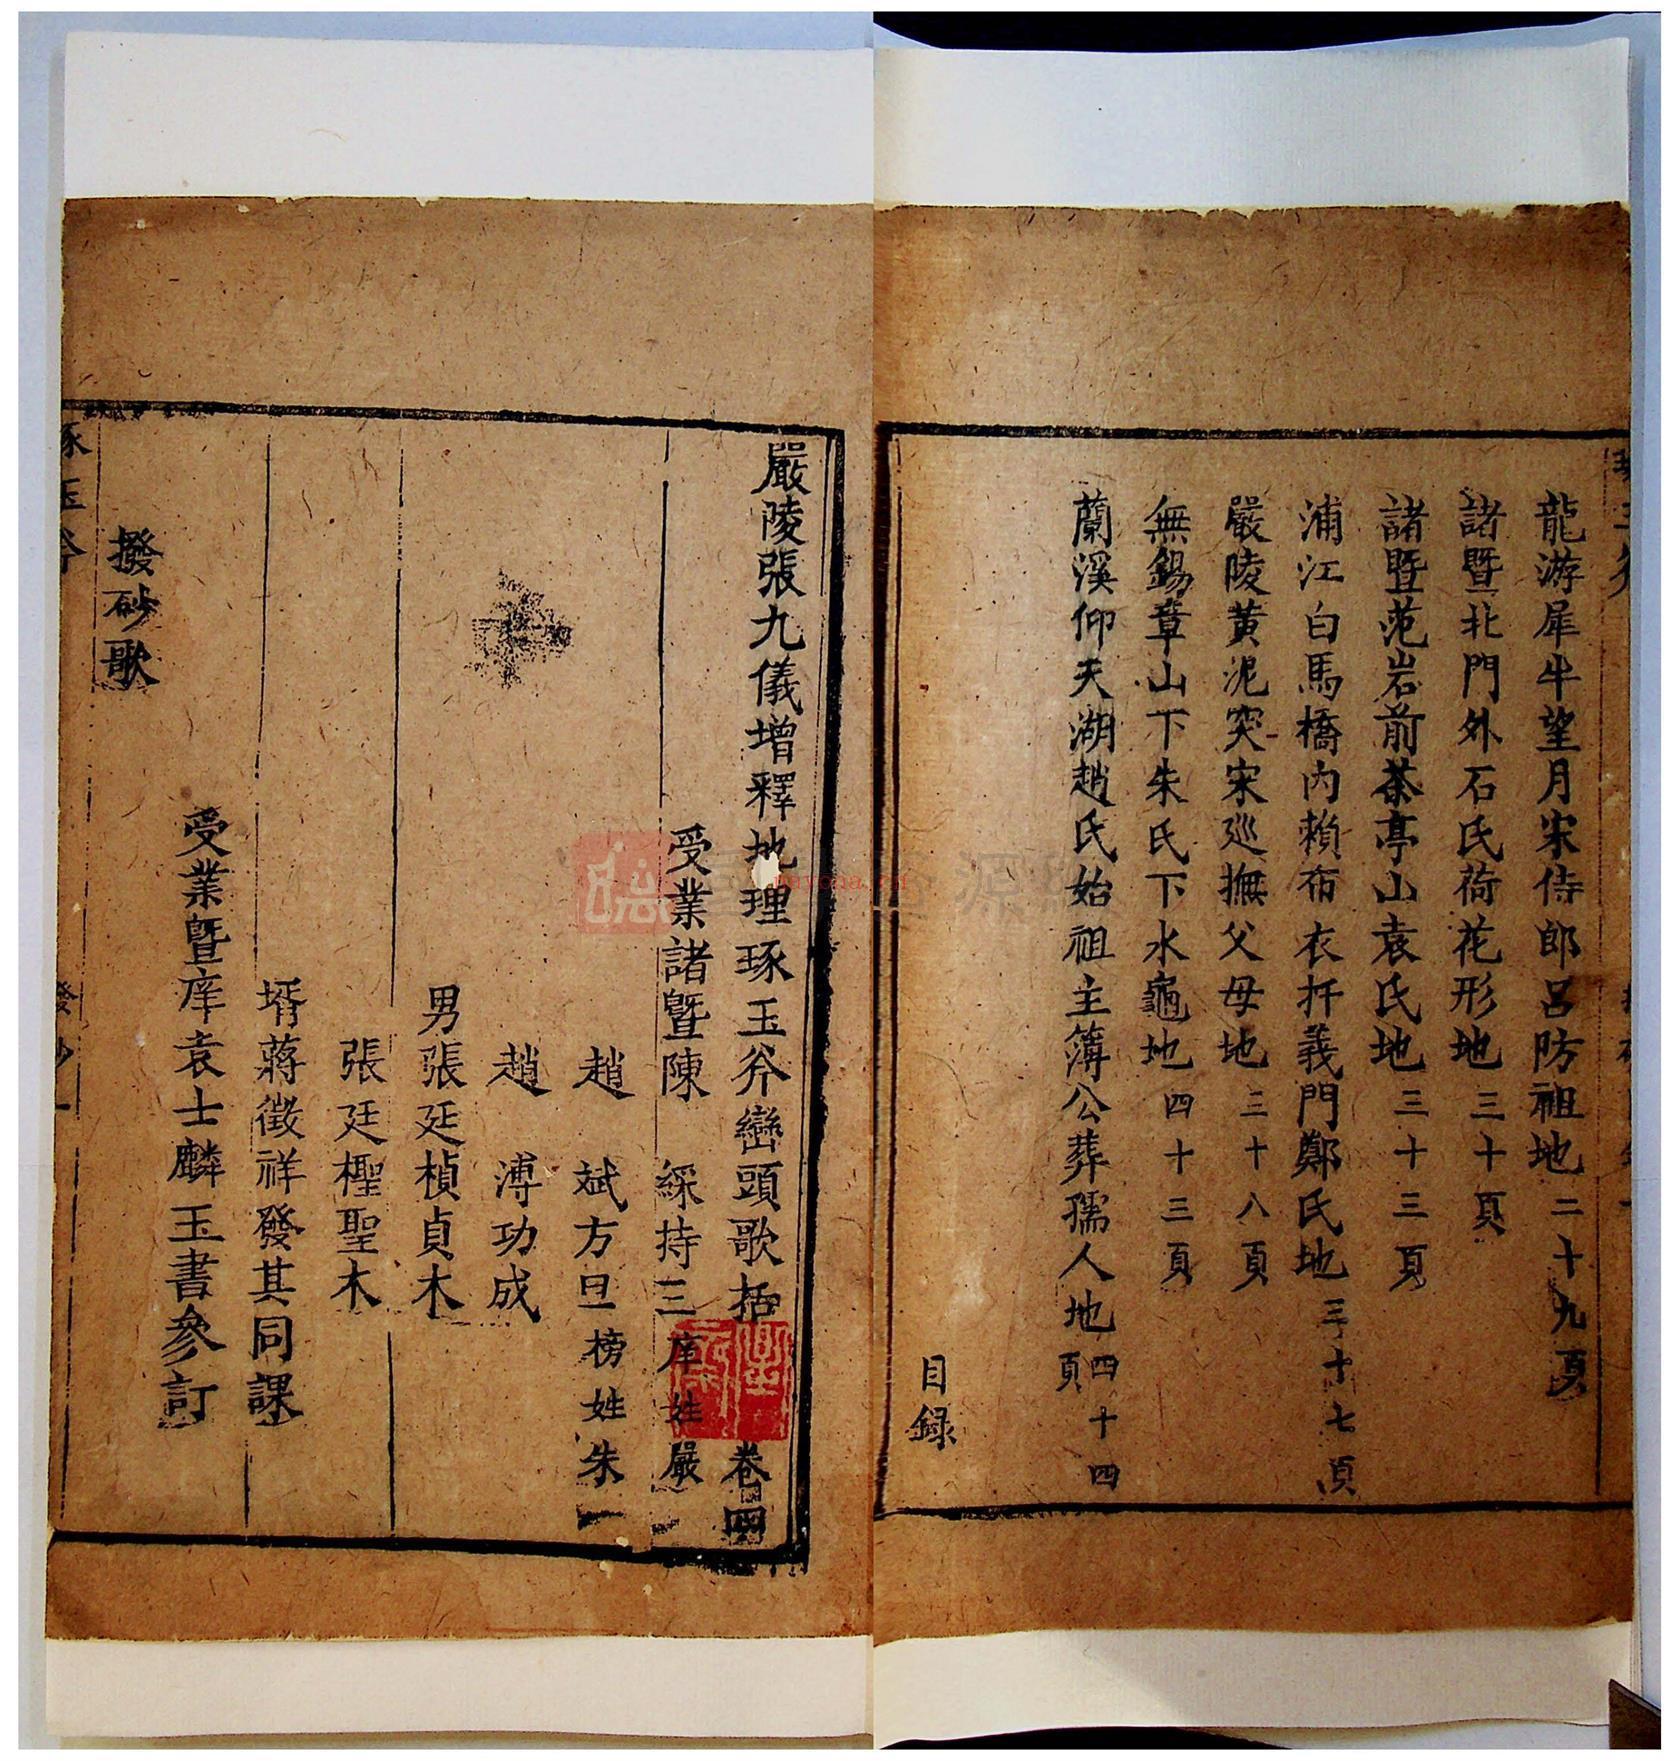 龍游犀牛望月宋侍郎呂防祖地二十九頁
諸暨北門外石氏荷花形地三十頁
諸暨范岩前茶亭山袁氏地三十三頁
浦江白馬橋內賴布衣扦義門鄭氏地三十七頁
嚴陵黃泥突宋巡撫父母地三十八頁
無錫章山下朱氏下水龜地四十三頁
蘭溪仰天湖趙氏始祖主簿公葬孺人地四十四頁
目録
嚴陵張九儀增釋地理琢玉斧巒頭歌括 卷四
受業諸暨陳 綵持三庠姓嚴
趙 斌方旦榜姓朱
趙 溥功成
男張廷楨貞木
張廷檉聖木
壻蔣徵祥發其同課
受業暨庠袁士麟玉書參訂
撥砂歌
琢玉斧